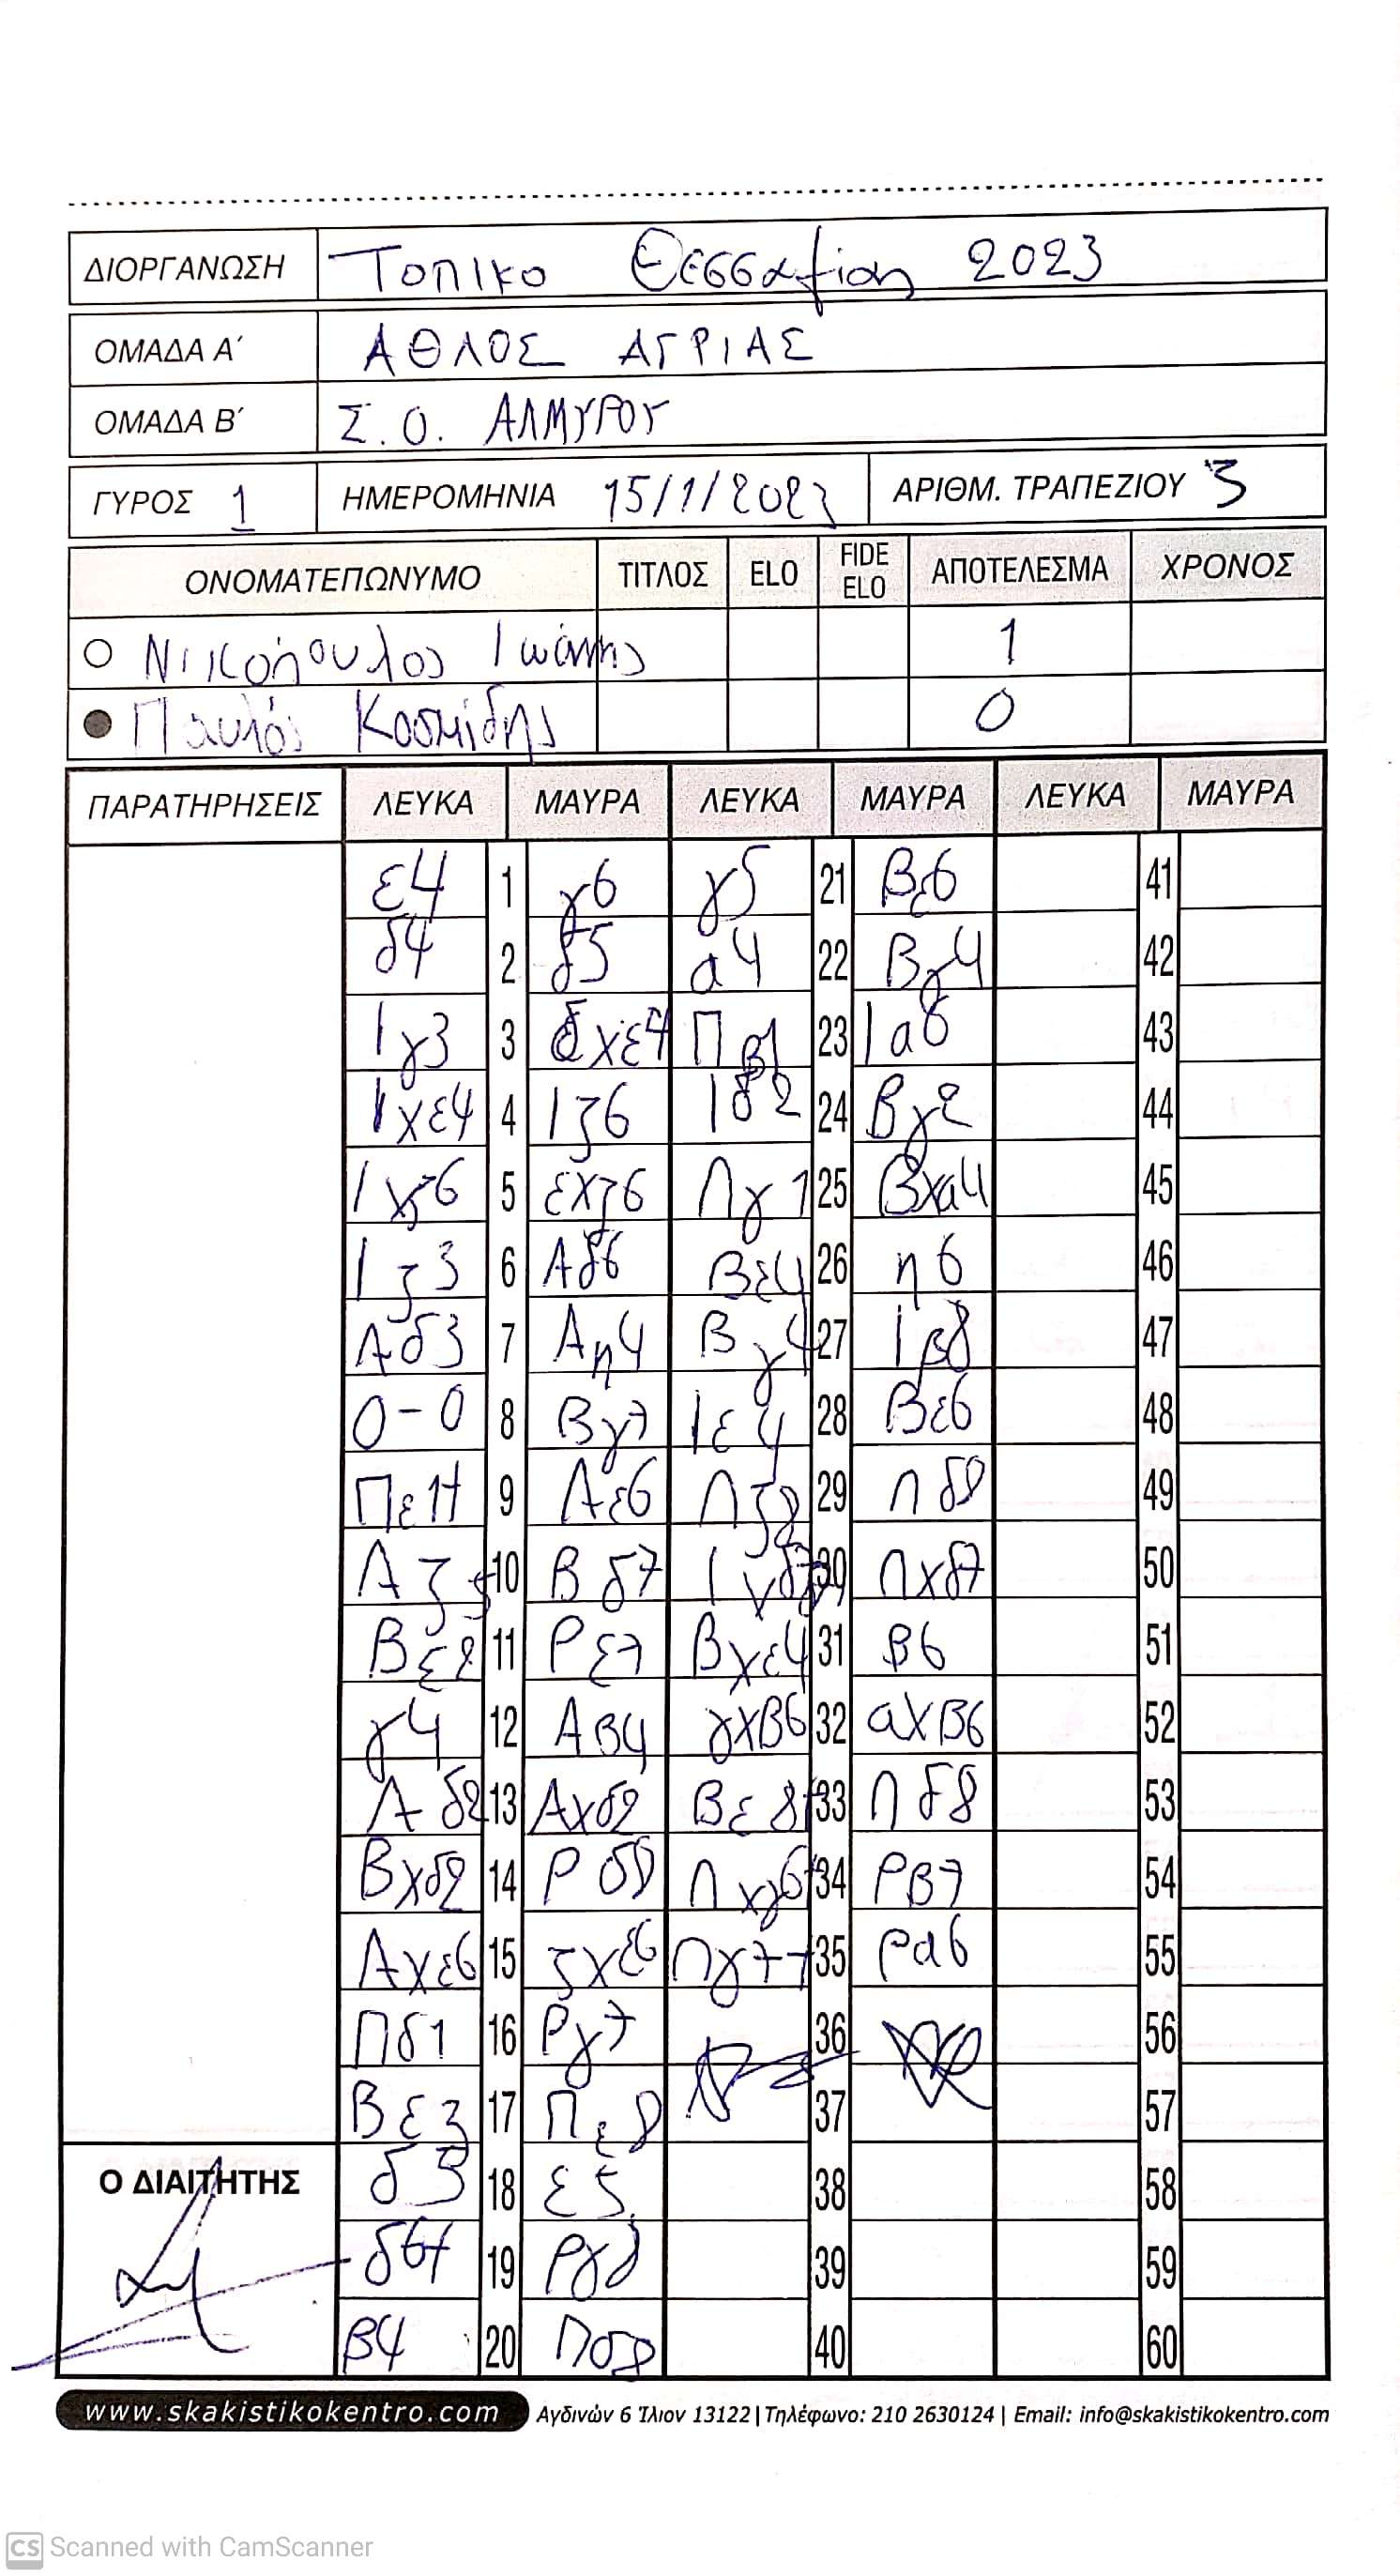 ΔΙΟΡΓΑΝΩΣΗ Τοπικο Θεσσαλίας 2023
ΟΜΑΔΑ Α΄ ΑΘΛΟΣ ΑΓΡΙΑΣ
ΟΜΑΔΑ Β΄ Σ.Ο. ΑΛΜΥΡΟΥ
ΓΥΡΟΣ 1 ΗΜΕΡΟΜΗΝΙΑ 15/1/2023 ΑΡΙΘΜ. ΤΡΑΠΕΖΙΟΥ 3
ΟΝΟΜΑΤΕΠΩΝΥΜΟ ΤΙΤΛΟΣ ELO FIDE ELO ΑΠΟΤΕΛΕΣΜΑ ΧΡΟΝΟΣ
Νικόπουλος Ιωάννης 1
Παυλός Κοσμίδης 0
ΠΑΡΑΤΗΡΗΣΕΙΣ ΛΕΥΚΑ ΜΑΥΡΑ ΛΕΥΚΑ ΜΑΥΡΑ ΛΕΥΚΑ ΜΑΥΡΑ
ε4 1 γ6 γ5 21 Βε6 41
δ4 2 δ5 α4 22 Βγ4 42
Ιγ3 3 δχε4 Πβ1 23 Ια6 43
Ιχε4 4 Ιζ6 Ιδ2 24 Βγ2 44
Ιχζ6 5 εχζ6 Πγ1 25 Βχα4 45
Ιζ3 6 Αδ6 Βε4 26 η6 46
Αδ3 7 Αη4 Βγ4 27 Ιβ8 47
0-0 8 Βγ7 Ιε4 28 Βε6 48
Πε1+ 9 Αε6 29 Πδ8 49
Αζ5 10 Βδ7 Ιχδ7 30 Πχδ7 50
Βε2 11 Ρε7 Βχε4 31 β6 51
γ4 12 Αβ4 γχβ6 32 αχβ6 52
Αδ2 13 Αχδ2 Βε8+ 33 Πδ8 53
Βχδ2 14 Ρδ8 Πχγ6+ 34 Ρβ7 54
Αχε6 15 ζχε6 Πγ7+ 35 Ρα6 55
Πδ1 16 Ργ7 36 56
Βε3 17 Πε8 37 57
Ο ΔΙΑΙΤΗΤΗΣ δ5 18 ε5 38 58
δ6+ 19 Ργ8 39 59
β4 20 Πδ8 40 60
www.skakistikokentro.com Αγδινών 6 Ίλιον 13122 | Τηλέφωνο: 210 2630124 | Email: info@skakistikokentro.com
CS Scanned with CamScanner